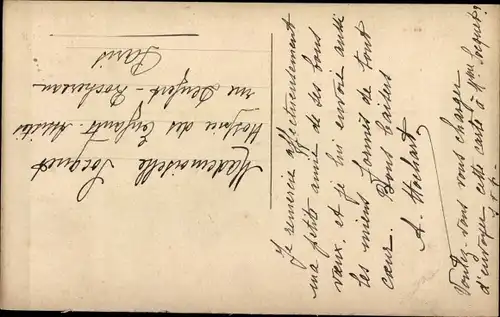 Mademoiselle Socquet
Hospice des Enfants Assistés
rue Denfert-Rochereau
Paris
Je remercie affectueusement
ma petite amie de ses bons
vœux, et je lui envoie aussi
les miens formés de tout
cœur. Bons baisers
A. Hochart
Voulez-vous vous charger
d'envoyer cette carte à Mme